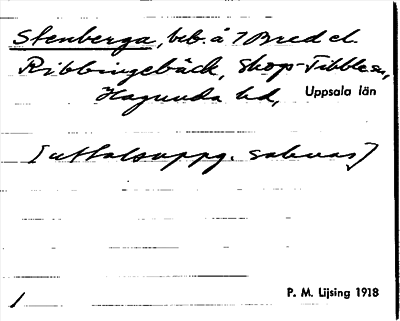 Stenberga, beb. å 7 Bred el.
Ribbingebäck, Skog-Tibble sn,
Hagunda hd, Uppsala län
[uttalsuppg. saknas]
P. M. Lijsing 1918
1